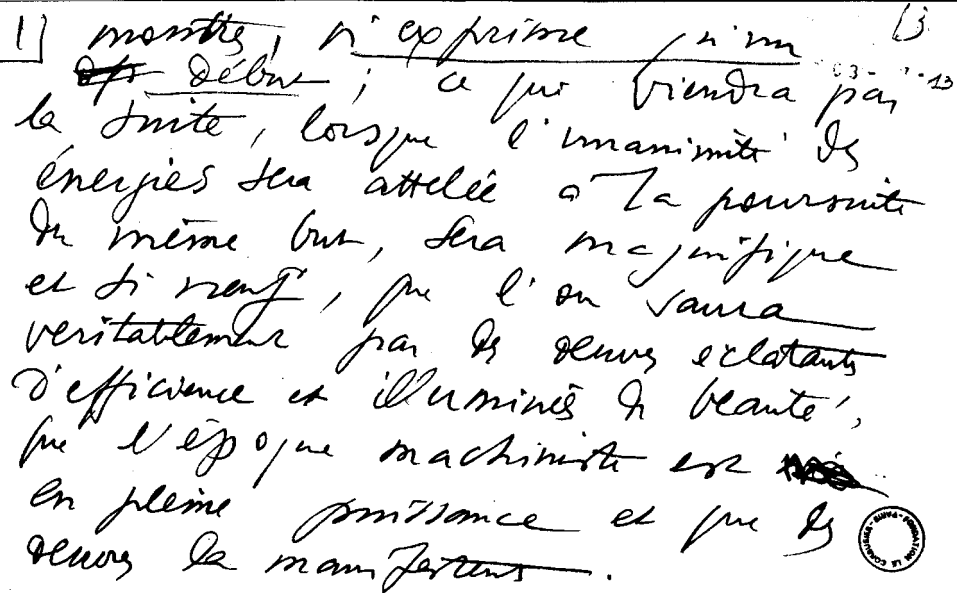 11 montre, n'exprime qu'un 13
début ; ce qui viendra par
la suite, lorsque l'unanimité des
énergies sera attelée à la poursuite
du même but, sera magnifique
et si neuf, que l'on saura
véritablement par des œuvres éclatants
d'efficience et illuminés de beauté,
que l'époque machiniste est
en pleine puissance et que des
œuvres la manifestent.
FONDATION LE CORBUSIER - PARIS